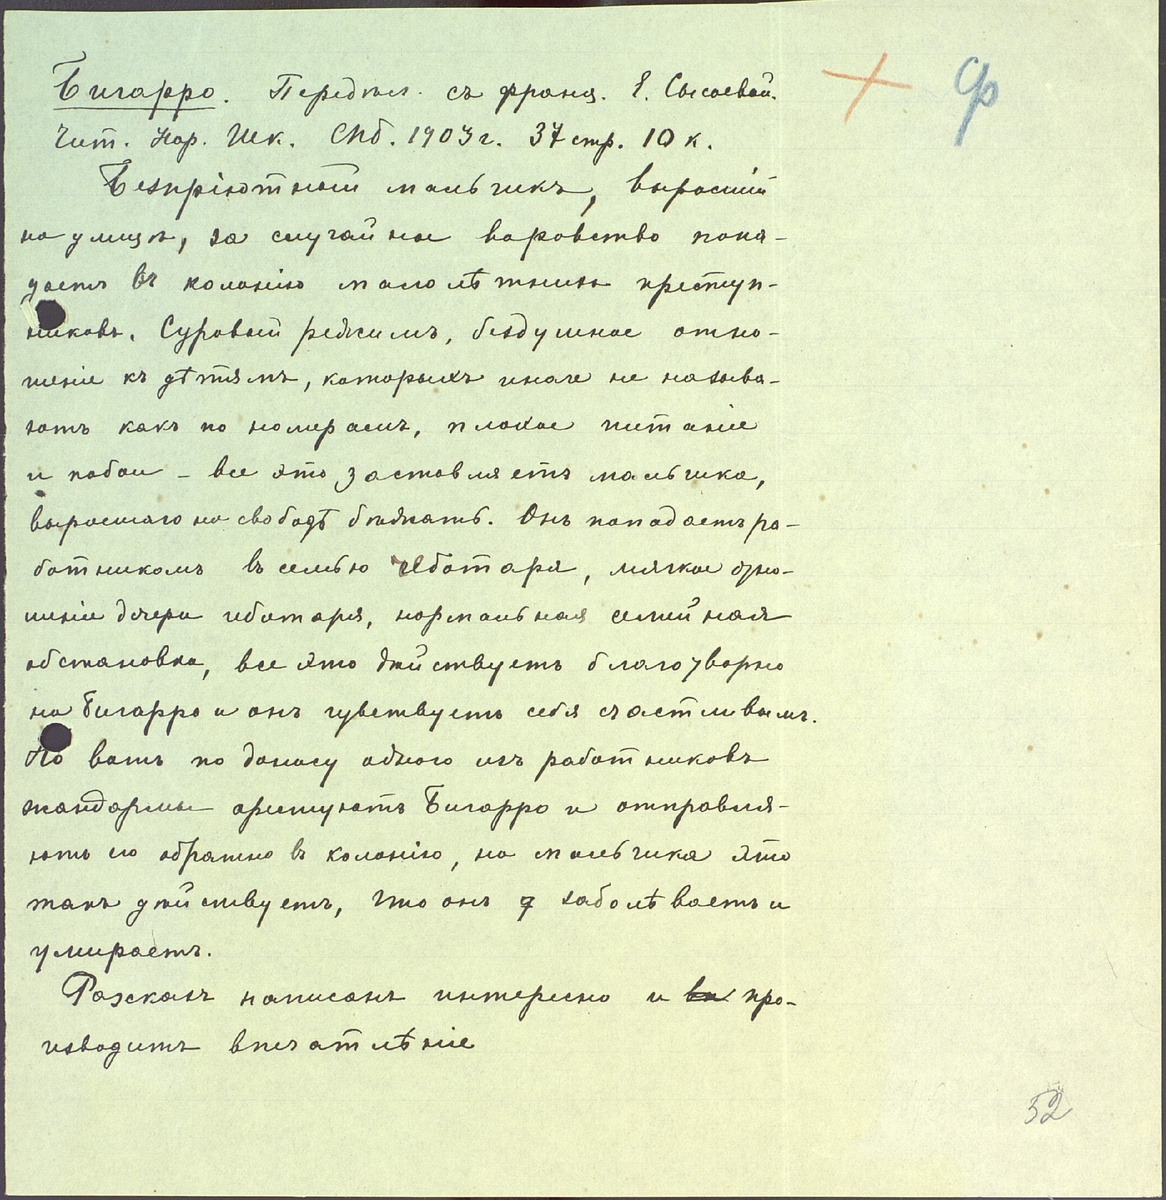 Бигарро. Передѣл. съ франц. Е. Сысоевой.
Чит. Нар. Шк. СПб. 1903 г. 37 стр. 10 к.
Безпріютный мальчикъ, выросшій
на улицѣ, за случайное воровство попа-
даетъ въ колонію малолѣтнихъ преступ-
никовъ. Суровый режимъ, бездушное отно-
шеніе къ дѣтямъ, которыхъ иначе не называ-
ютъ какъ по номерамъ, плохое питаніе
и побои – все это заставляетъ мальчика,
выросшаго на свободѣ бѣжать. Онъ попадаетъ ра-
ботникомъ въ семью чеботаря, мягкое отно-
шеніе дочери чеботаря, нормальная семейная
обстановка, все это дѣйствуетъ благотворно
на Бигарро и онъ чувствуетъ себя счастливымъ.
Но вотъ по доносу одного изъ работниковъ
жандармы арестуютъ Бигарро и отправля-
ютъ его обратно въ колонію, на мальчика это
такъ дѣйствуетъ, что онъ заболѣваетъ и
умираетъ.
Разсказъ написанъ интересно и про-
изводитъ впечатлѣніе
+ Ф
52